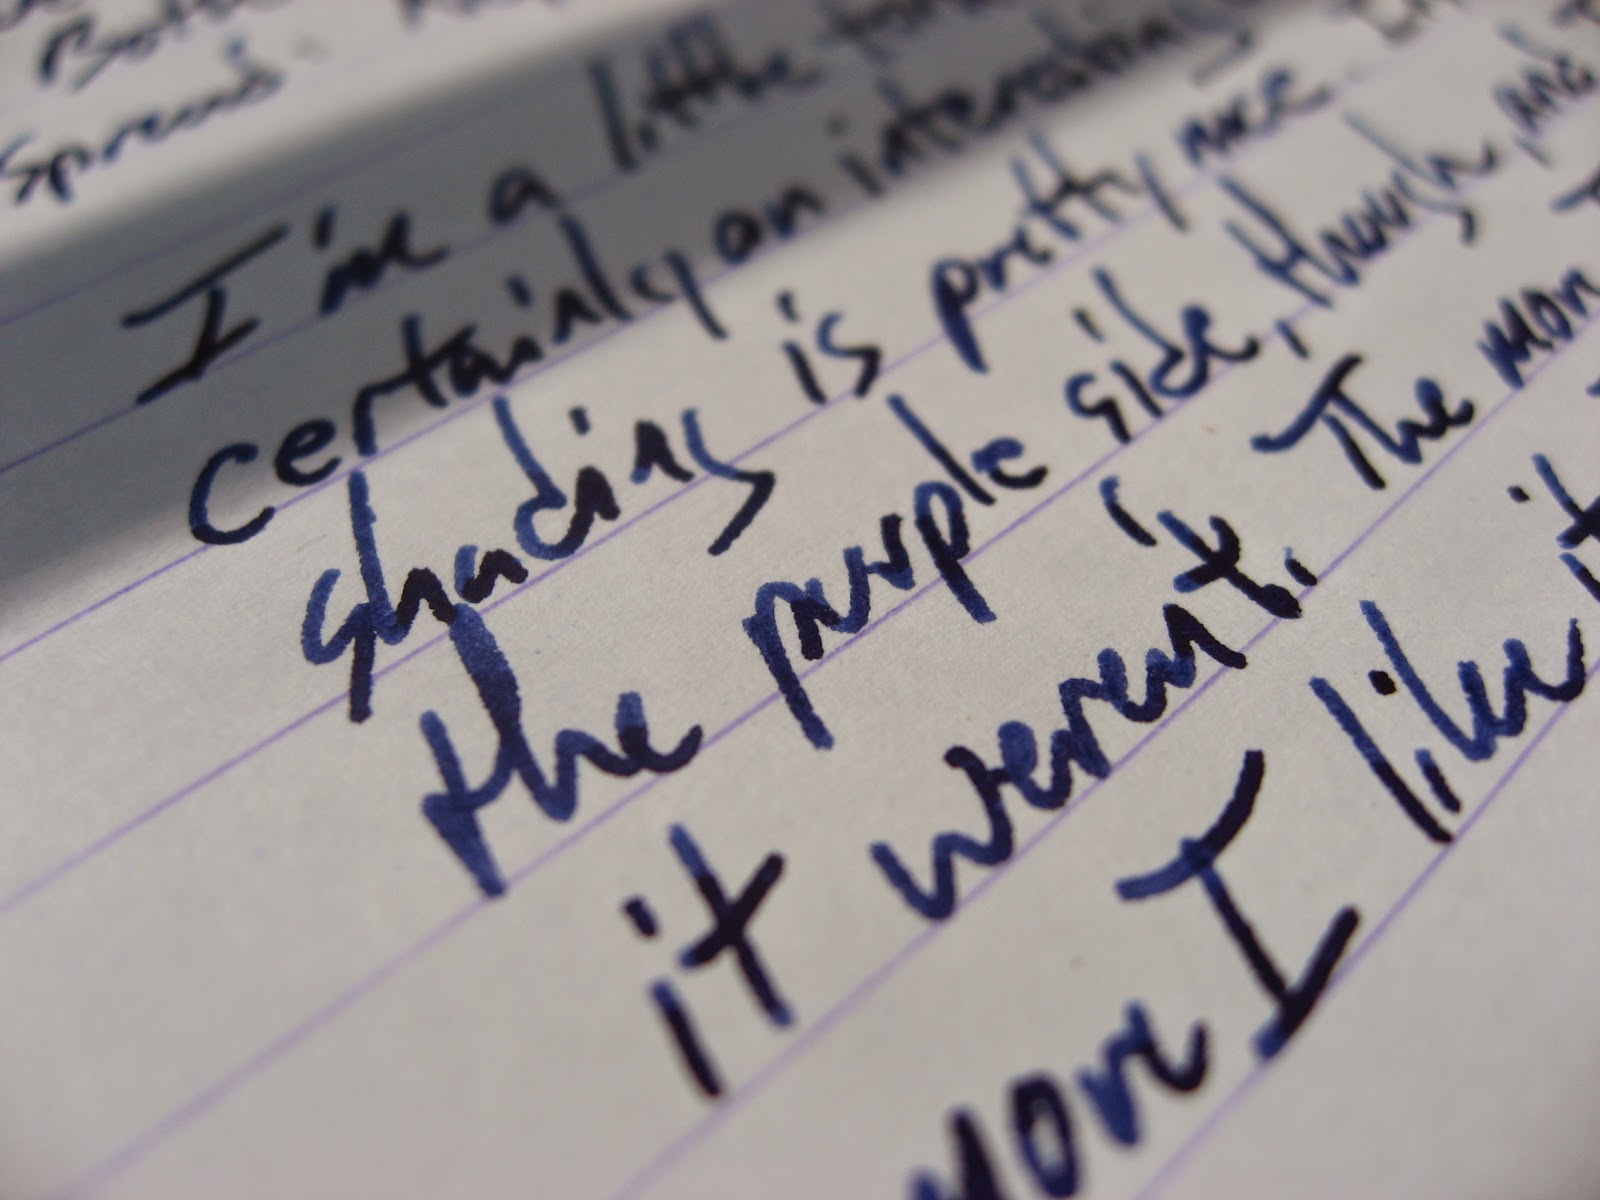 Spread.
I'm a little
certainly an interesting
shading is pretty nice.
the purple side, though, and
it weren't. The mon
more I like it